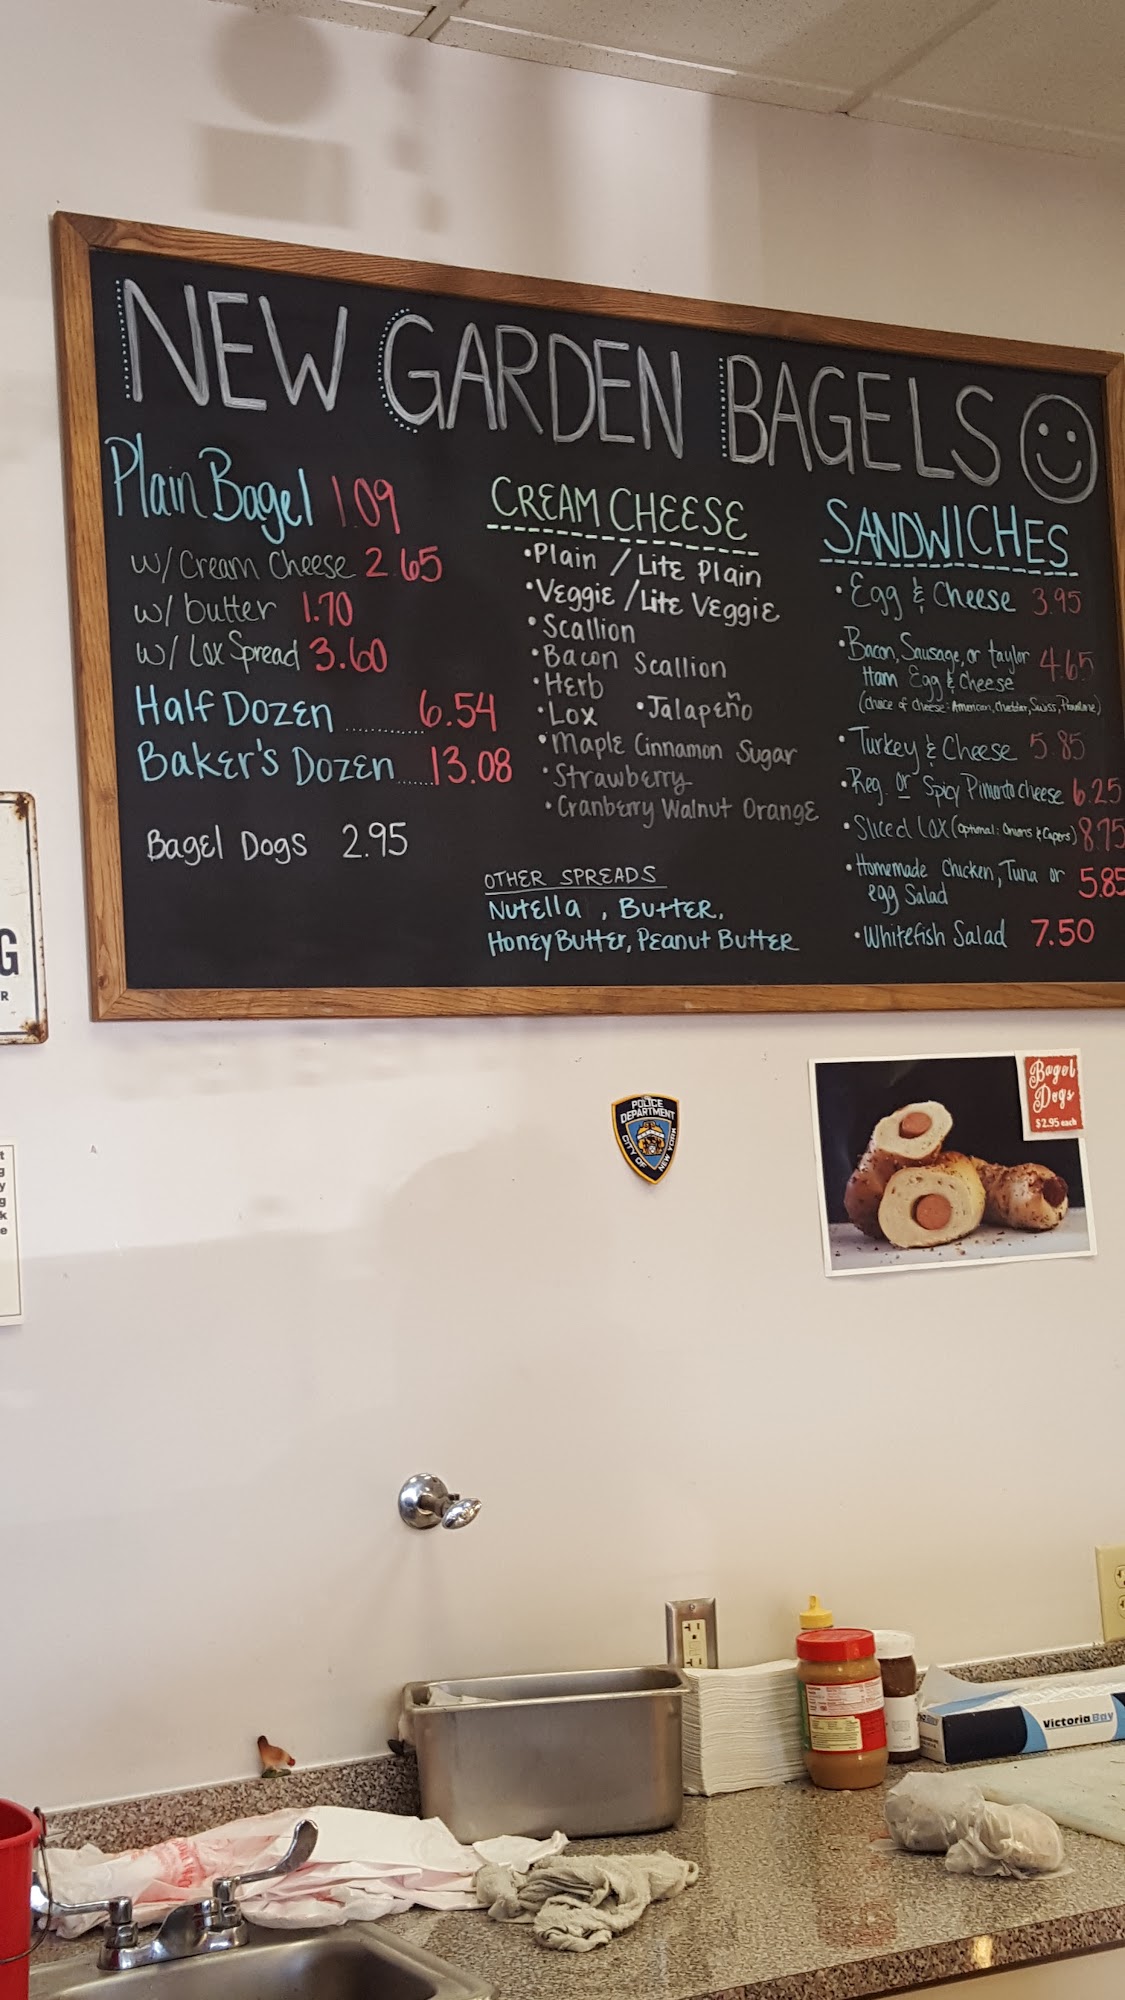 NEW GARDEN BAGELS
Plain Bagel 1.09
w/ Cream Cheese 2.65
w/ butter 1.70
w/ Lox Spread 3.60
Half Dozen ............ 6.54
Baker's Dozen ..... 13.08
Bagel Dogs 2.95
CREAM CHEESE
• Plain / Lite Plain
• Veggie / Lite Veggie
• Scallion
• Bacon Scallion
• Herb
• Lox • Jalapeño
• Maple Cinnamon Sugar
• Strawberry
• Cranberry Walnut Orange
OTHER SPREADS
Nutella , Butter,
Honey Butter, Peanut Butter
SANDWICHES
• Egg & Cheese 3.95
• Bacon, Sausage, or taylor 4.65
Ham Egg & Cheese
(choice of cheese: American, Cheddar, Swiss, Provolone)
• Turkey & Cheese 5.85
• Reg. or Spicy Pimento cheese 6.25
• Sliced Lox (optional: Onions & Capers) 8.75
• Homemade Chicken, Tuna or 5.85
egg Salad
• Whitefish Salad 7.50
G
R
POLICE
DEPARTMENT
CITY OF NEW YORK
Bagel
Dogs
$2.95 each
t
g
y
g
k
e
Victoria Bay